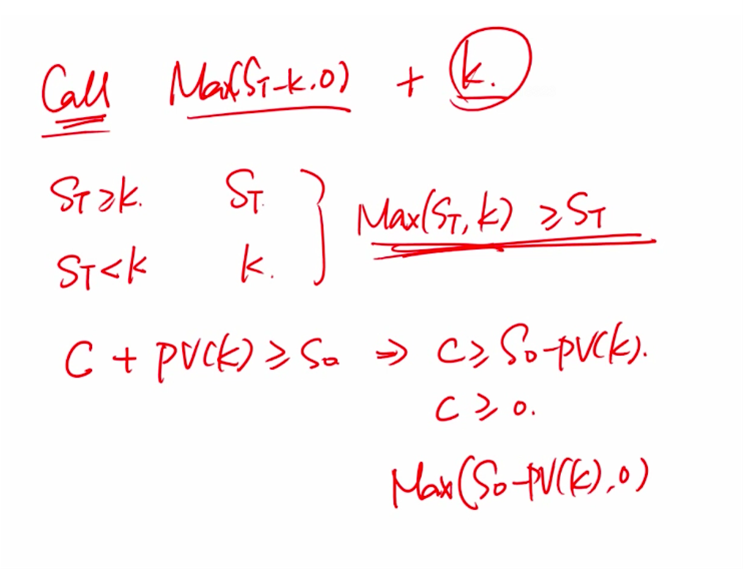 Call Max(S_T-k,0) + k.
S_T≥k. S_T.
S_T<k k.
Max(S_T,k) ≥S_T
C + PV(k) ≥ S_0 ⇒ C≥ S_0-PV(k).
C ≥ 0.
Max(S_0-PV(k),0)